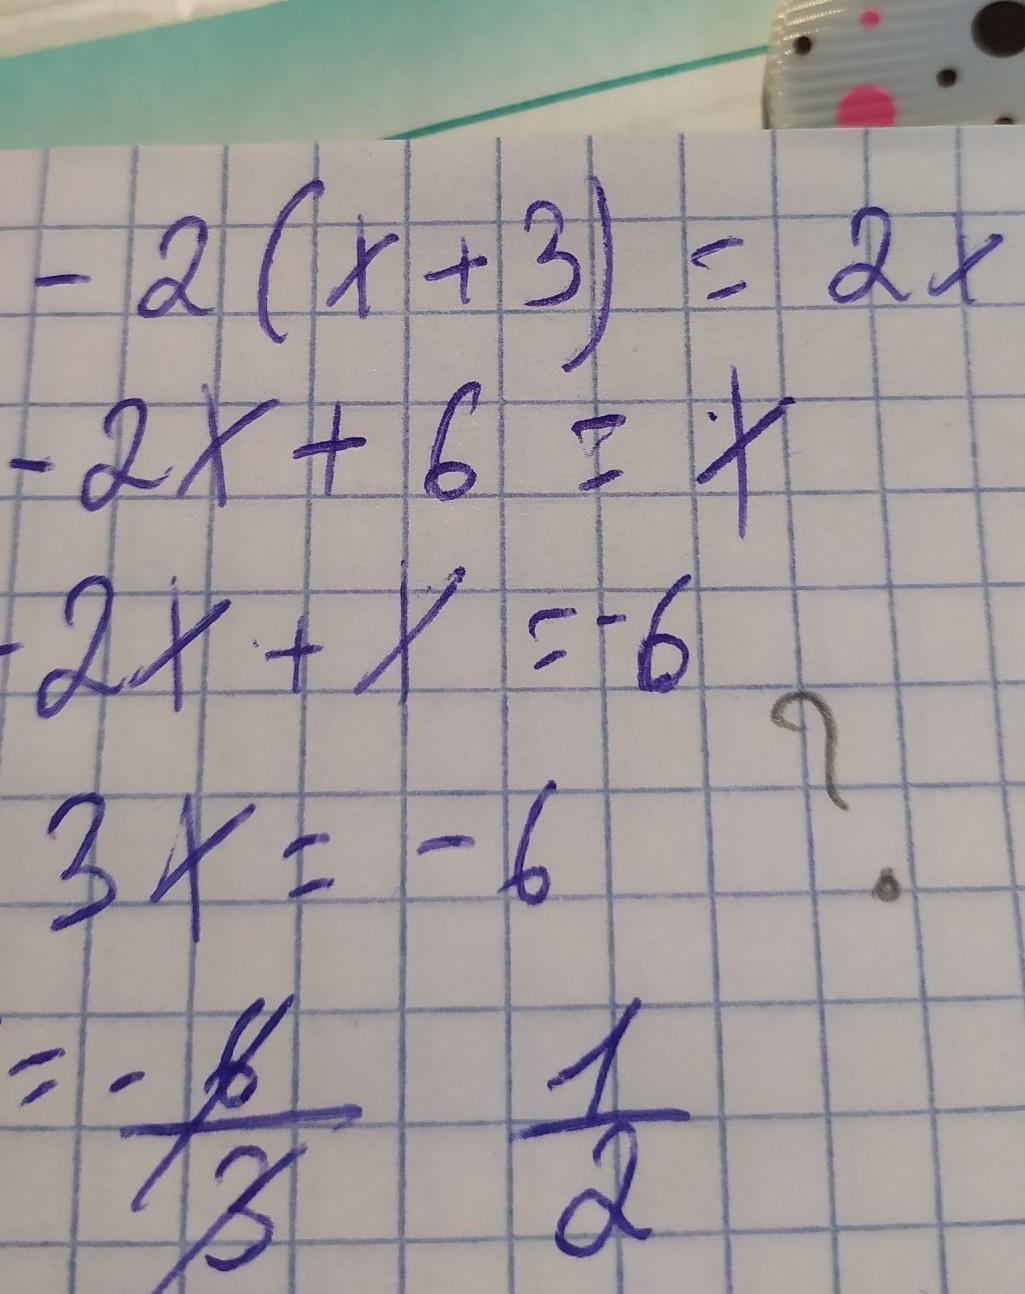 - 2 (x + 3) = 2x
- 2x + 6 = x
- 2x + x = -6
?
3x = - 6
= - 6/3 1/2